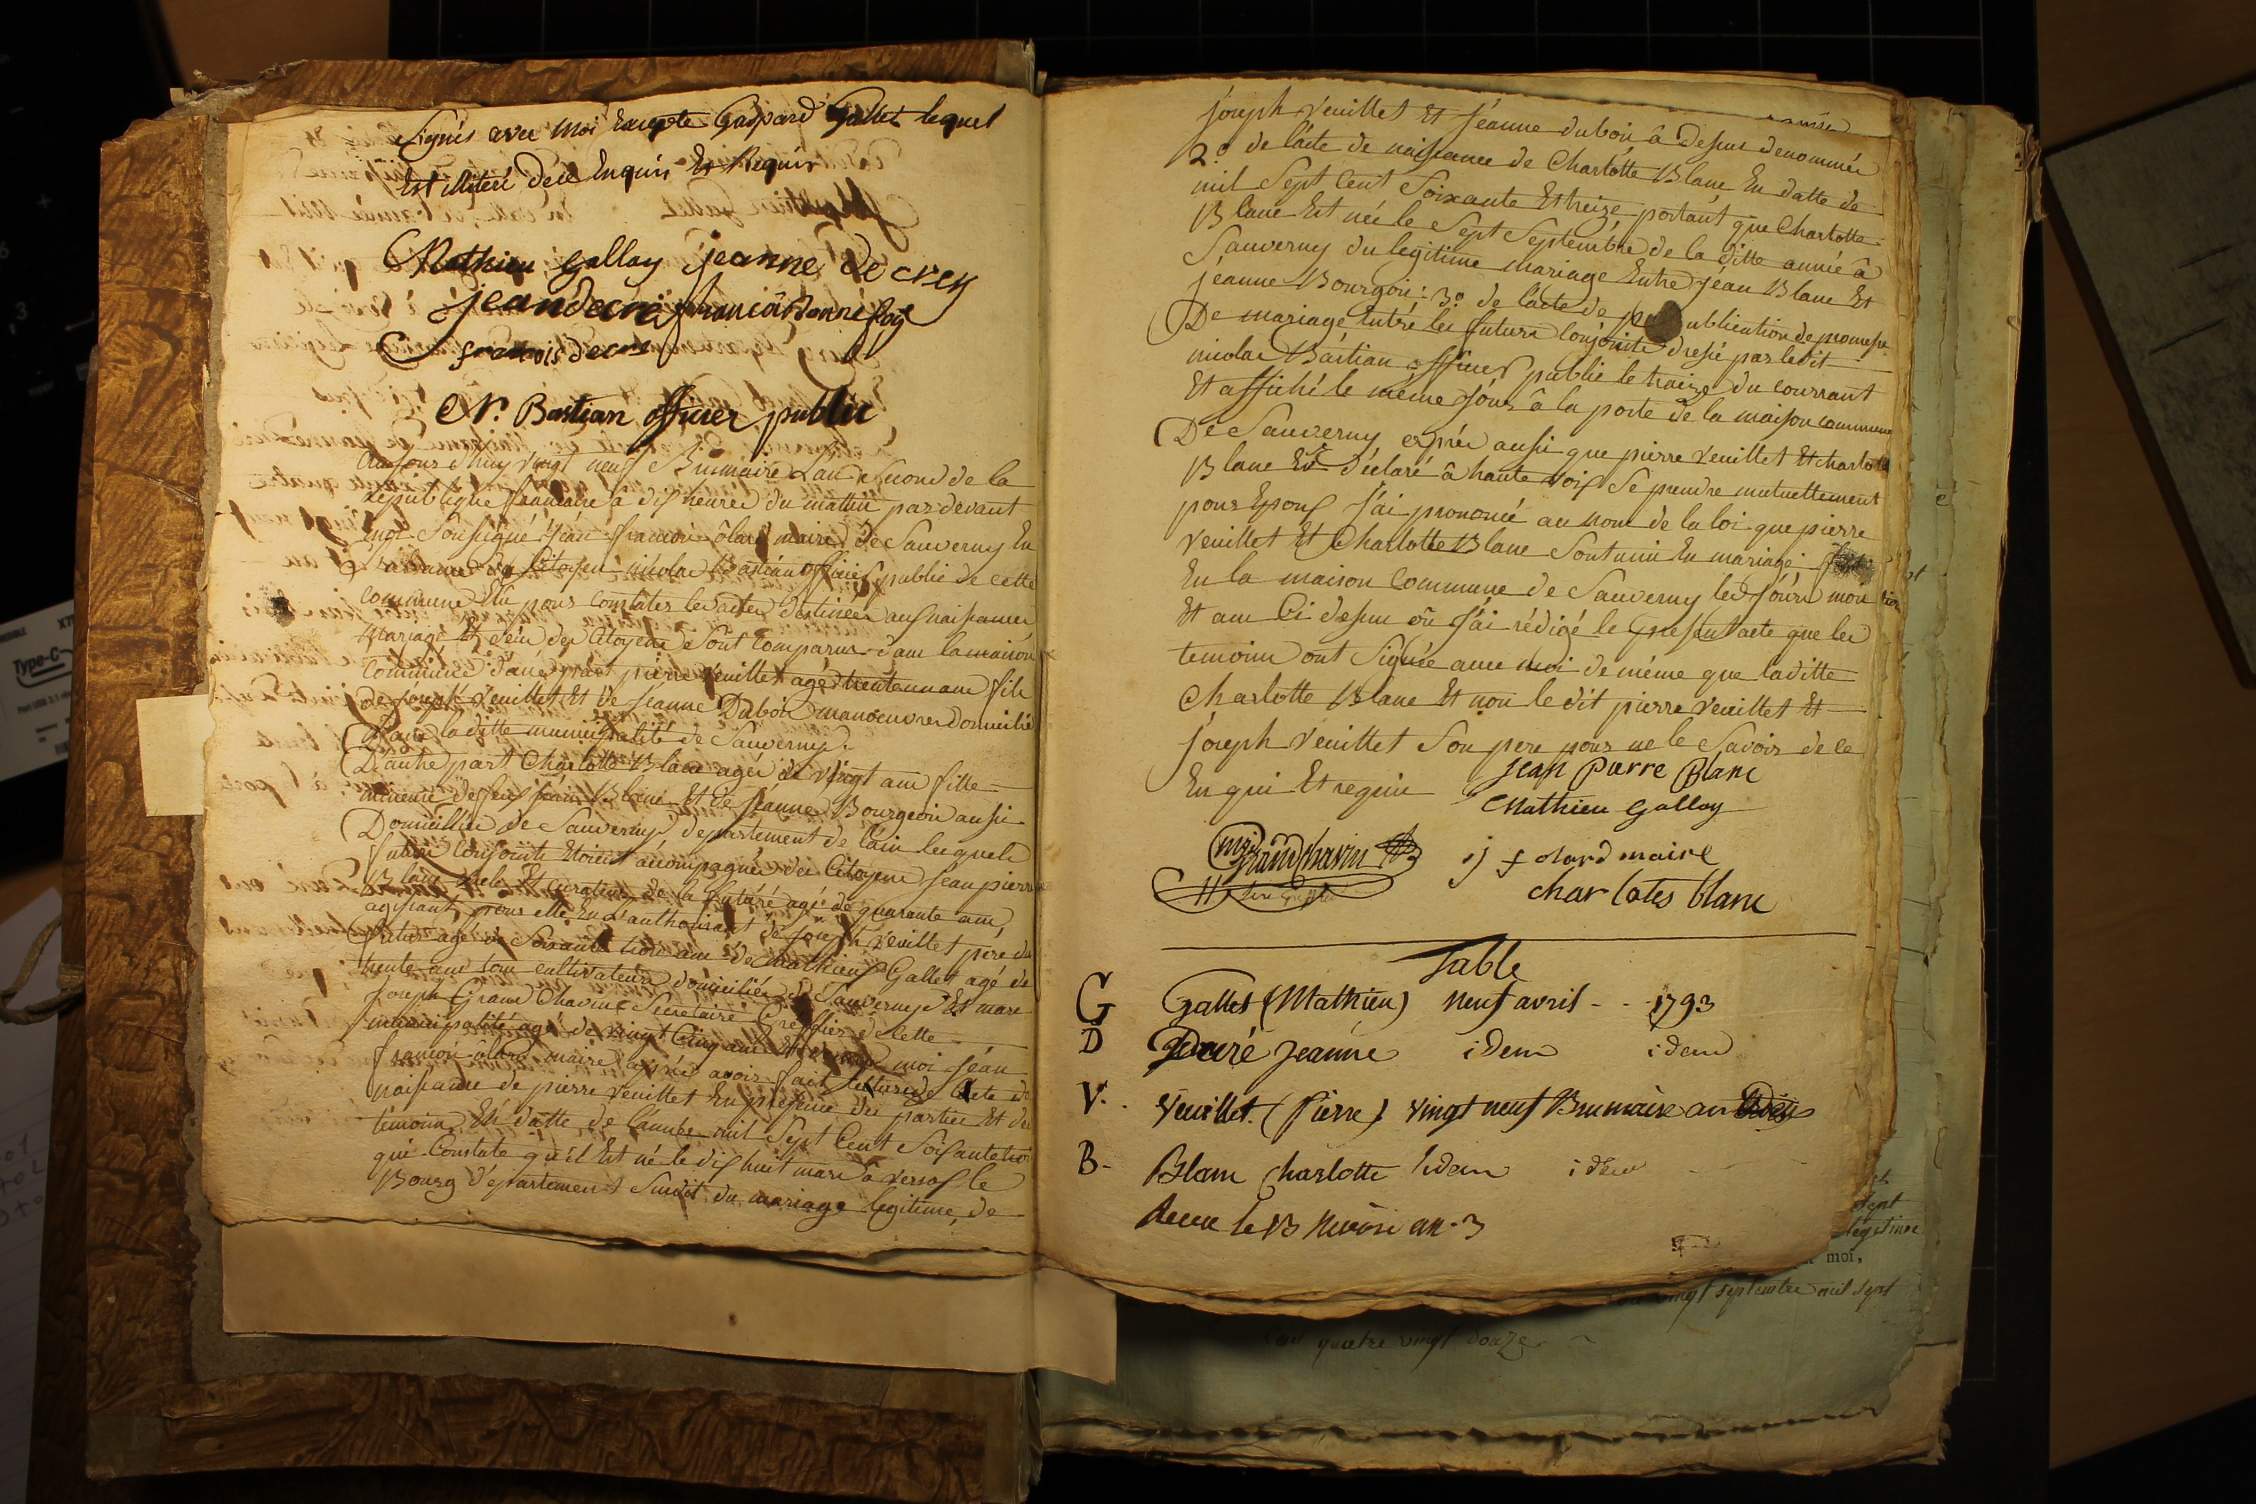 Signés avec Moi Excepte Gaspard Gallet lequel
Est illiteré déce Enquis Et Requis
Mathieu gallay jeanne decrey
jean decré francois donné
francois decre
N. Bastian officier public
Aujourd'huy vingt neuf Brumaire L'an Second de la
République francaire à dix heures du mattin pardevant
moi Soussigné jéan francoi ôlard maire de Sauverny En
citoyen nicolas Bastian officier public de cette
commune Elu pour constater les actes destinéer aux naissances
Mariage Et décu der Citoyens Sont comparus dans la maison
commune d'une part pierre Veuillet agé trente un ans fils
de joseph Veuillet Et de jéanne Duboi manoeuvrer domicilié
dans laditte municipalité de Sauverny
D'autre part Charlotte Blanc agée de vingt ans fille
mineure de feu jéan Blanc Et de jéanne Bourgeoi aussi
Domicilliée de Sauverny département de l'ain lesquels
futuri Conjoints Etoient accompagnér der Citoyens jean pierre
Blanc Et Curateur de la futuré agé de quarante ans
agissant pour elle En L'authorisant de joseph Veuillet père du
futur agé de Soixante troi ans de Mathieu Gallet agé de
trente ans tous cultivateurs domiciliés à Sauverny Et marc
joseph Grand Chavin Secretaire Greffier de cette
municipalité agé de vingt Cinq ans moi jéan
francoi ôlard maire après avoir fait lecture de l'acte de
naissance de pierre Veuillet En présence des parties Et des
témoins En datte de l'année mil Sept Cent Soixante troi
qui Constate qu'il Est né le dix huit mars à versox le
Bourg département Susdit du mariage légitime de
joseph Veuillet Et jéanne duboi à dessus denommés
2.º de l'acte de naissance de Charlotte Blanc En datte de
mil Sept Cent Soixante Et treize portant que Charlotte
Blanc Est née le Sept Septembre de la ditte année à
Sauverny du légitime mariage Entre jéan Blanc Et
jéanne Bourgoi: 3.º de l'acte de publication de promesse
De mariage Entre les futurs Conjoints dressé par ledit
nicolas Bastian officier public le traize du courrant
Et affiché le même jour à la porte de la maison commune
De Sauverny après aussi que pierre Veuillet Et Charlotte
Blanc Eut déclaré à haute voix Se prendre mutuellement
pour Epoux j'ai prononcé au nom de la loi que pierre
Veuillet Et Charlotte Blanc Sont unis En mariage
En la maison Commune de Sauverny led jours mois
Et ans Ci dessus où j'ai rédigé le présent acte que les
temoins ont Signée avec moi de même que laditte
Charlotte Blanc Et non le dit pierre Veuillet Et
joseph Veuillet Son pere pour ne le Savoir de ce
Enqui Et requis
jean Pierre Blanc
Mathieu gallay
grand chavin
j f olard maire
charlotes blanc
Table
G Gallet (Mathieu) neuf avril - - 1793
D Decré Jeanne idem idem
V. Veuillet (Pierre) vingt neuf Brumaire an
B- Blanc Charlotte idem idem
le 13 Nivôse an 3
moi,
vingt septembre mil sept
cent quatre vingt douze